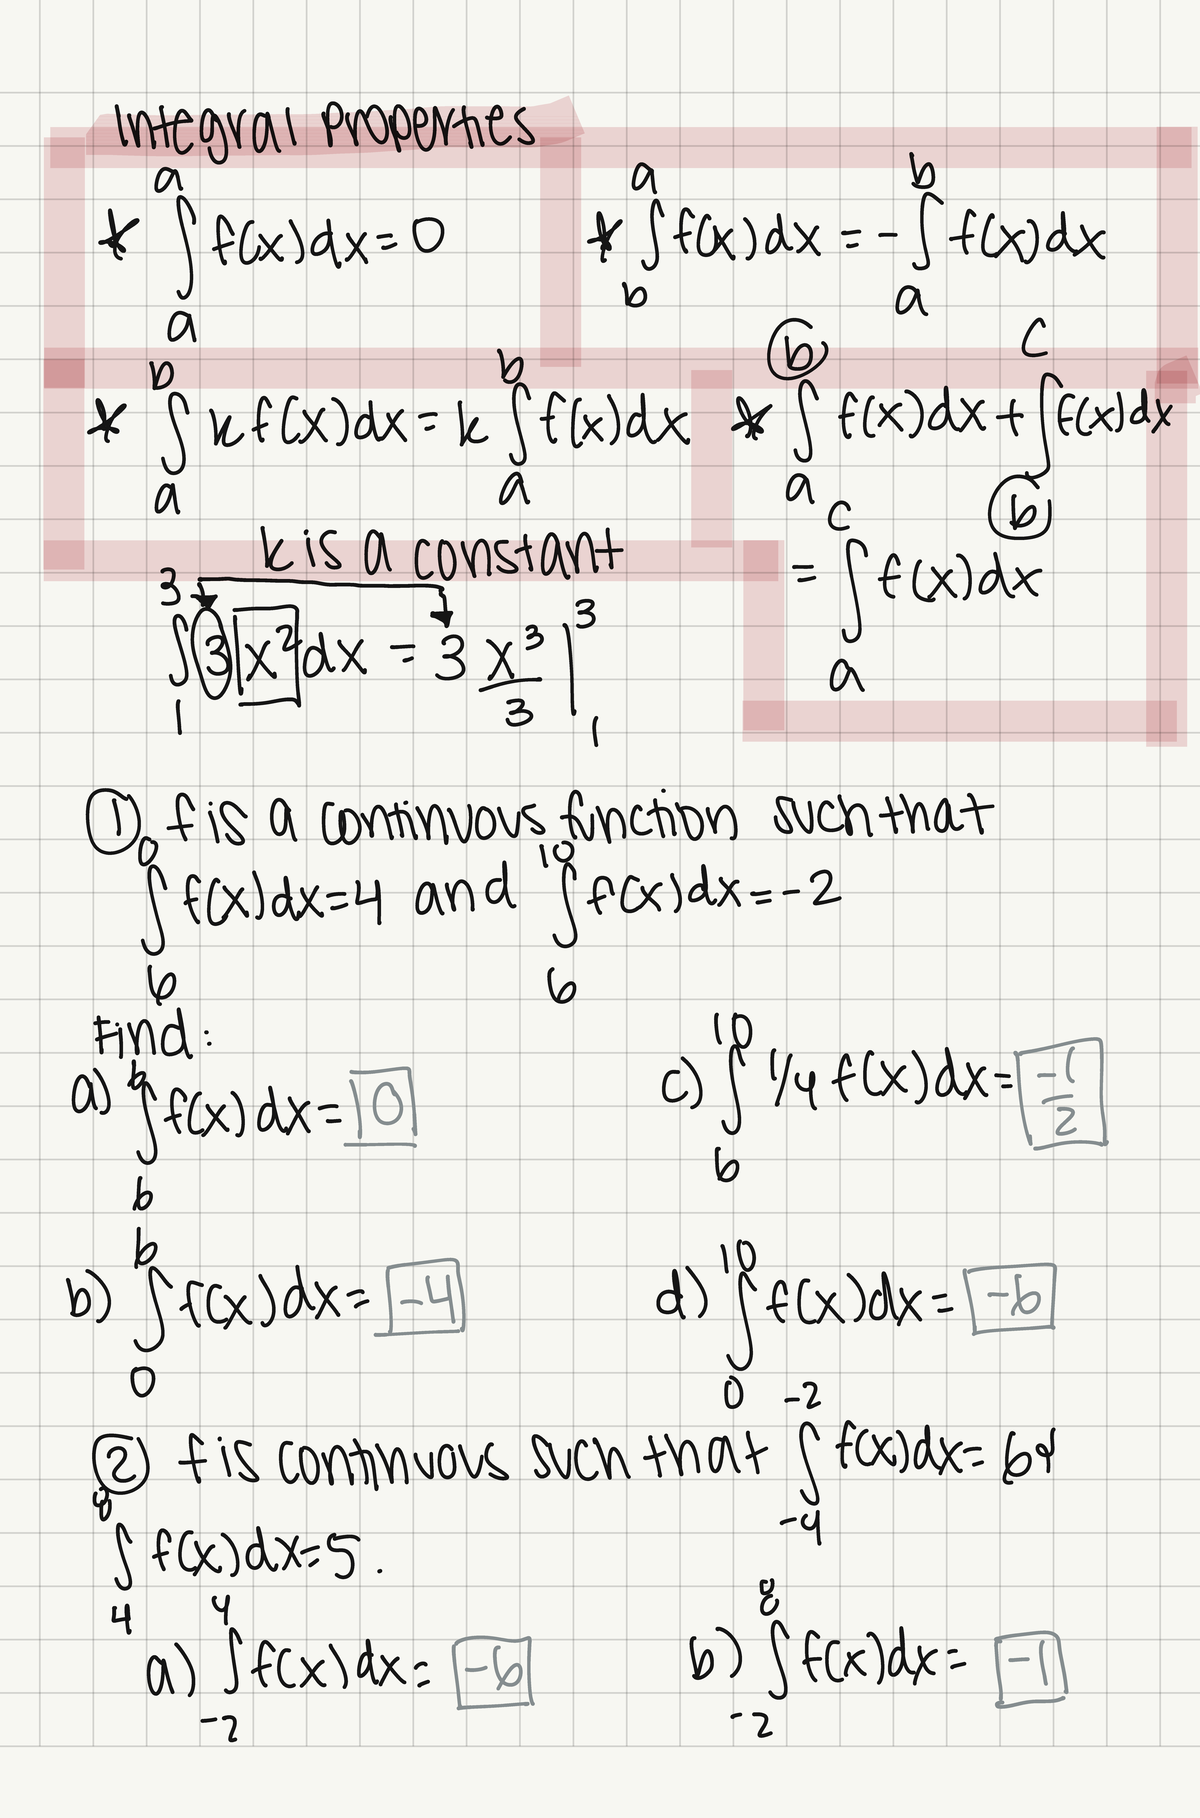 Integral Properties
* ∫_a^a f(x)dx = 0
* ∫_b^a f(x)dx = -∫_a^b f(x)dx
* ∫_a^b k f(x)dx = k ∫_a^b f(x)dx
k is a constant
∫_1^3 3 x² dx = 3 x³/3 |_1^3
* ∫_a^b f(x)dx + ∫_b^c f(x)dx
= ∫_a^c f(x)dx
① f is a continuous function such that
∫_6^0 f(x)dx=4 and ∫_6^10 f(x)dx=-2
Find:
a) ∫_6^6 f(x)dx= 0
b) ∫_0^6 f(x)dx= -4
c) ∫_6^10 1/4 f(x)dx= -1/2
d) ∫_0^10 f(x)dx= -6
② f is continuous such that ∫_-4^-2 f(x)dx= 6 &
∫_4^8 f(x)dx=5.
a) ∫_-2^4 f(x)dx= -6
b) ∫_-2^8 f(x)dx= -1